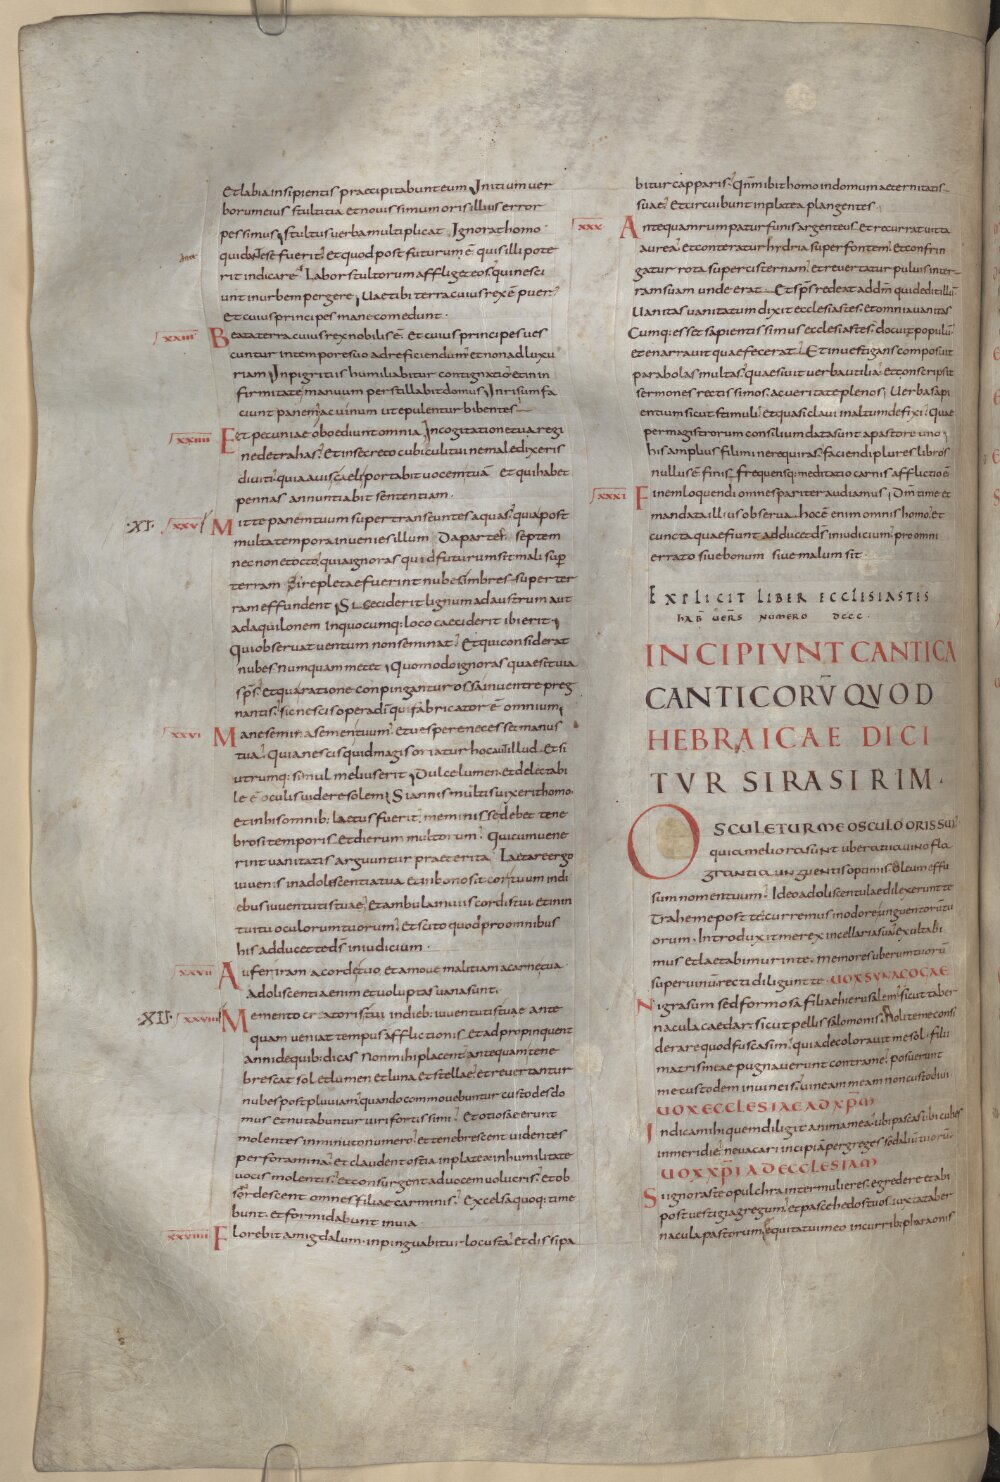 Et labia insipientis praecipitabunt eum Initium ver
borum eius stultitia et novissimum oris illius error
pessimus stultus verba multiplicat Ignorat homo
quid ante se fuerit et quod post futurum ē quis illi pote
rit indicare Labor stultorum affliget eos qui nesci
unt in urbem pergere Vae tibi terra cuius rex ē puer
et cuius principes mane comedunt
xxiii Beata terra cuius rex nobilis ē Et cuius principes ves
cuntur in tempore suo ad reficiendum et non ad luxu
riam In pigritiis humiliabitur contignatio et in in
firmitate manuum perstillabit domus In risum fa
ciunt panem ac vinum ut epulentur bibentes
xxiiii Et pecuniae oboediunt omnia In cogitatione tua regi
ne detrahas Et in secreto cubiculi tui ne maledixeris
diviti quia avis caeli portabit vocem tuā et qui habet
pennas annuntiabit sententiam
XI xxv Mitte panem tuum super transeuntes aquas quia post
multa tempora invenies illum Da partē septem
nec non et octo quia ignoras quid futurum sit mali sup
terram Si repletae fuerint nubes imbres super ter
ram effundent Si ceciderit lignum ad austrum aut
ad aquilonem in quocumq: loco caeciderit ibi erit
Qui observat ventum non seminat Et qui considerat
nubes numquam metet Quomodo ignoras quae sit via
sp̄s et qua ratione conpingantur ossa in ventre preg
nantis sic nescis opera dī qui fabricator ē omnium
xxvi Mane semina semen tuum et vespere ne cesset manus
tua Quia nescis quid magis oriatur hoc aut illud Et si
utrumq: simul melius erit Dulce lumen et delectabi
le ē oculis videre solem Si annis multis vixerit homo
et in his omnib: laetus fuerit meminisse debet tene
brosi temporis Et dierum multorum Qui cum vene
rint vanitatis arguuntur praeterita Laetare ergo
iuvenis in adoliscentia tua et in bono sit cor tuum indi
ebus iuventutis tuae Et ambula in viis cordis tui et in in
tuitu oculorum tuorum Et scito quod pro omnibus
his adducet te d̄s in iudicium
xxvii Aufer iram a corde tuo et amove malitiam a carne tua
Adoliscentia enim et voluptas vana sunt
XII xxviii Memento creatoris tui in dieb: iuventutis tuae ante
quam veniat tempus afflictionis Et adpropinquent
anni de quib: dicas non mihi placent antequam tene
brescat sol et lumen et luna et stellae et revertantur
nubes post pluviam quando commovebuntur custodes do
mus et nutabuntur viri fortissimi Et otiosae erunt
molentes in minuto numero et tenebrescent videntes
per foramina et claudent ostia in platea in humilitate
vocis molentis Et consurgent ad vocem volucris Et ob
surdescent omnes filiae carminis Excelsa quoq: time
bunt et formidabunt in via
xxviiii Florebit amigdalum inpinguabitur locusta Et dissipa
bitur capparis Qnm ibit homo in domum aeternitatis
suae Et circuibunt in platea plangentes
xxx Antequam rumpatur funis argenteus Et recurrat vitta
aurea et conteratur hydria super fontem et confrin
gatur rota super cisternam et revertatur pulvis in ter
ram suam unde erat Et sp̄s redeat ad dm̄ qui dedit illū
Vanitas vanitatum dixit ecclesiastes et omnia vanitas
Cumq: esset sapientissimus ecclesiastes docuit populū
et enarravit quae fecerat Et investigans composuit
parabolas multas quaesivit verba utilia et conscripsit
sermones rectissimos ac veritate plenos Verba sapi
entium sicut stimuli et quasi clavi in altum defixi Quae
per magistrorum consilium data sunt a pastore uno
his amplius fili mi ne requiras faciendi plures libros
nullus ē finis frequensq: meditatio carnis afflictio ē
xxxi Finem loquendi omnes pariter audiamus Dm̄ time et
mandata illius observa hoc ē enim omnis homo et
cuncta quae fiunt adducet d̄s in iudicium pro omni
errato sive bonum sive malum sit
EXPLICIT LIBER ECCLESIASTES
HAB VERS NUMERO DCCC
INCIPIVNT CANTICA
CANTICORV̄ QVOD
HEBRAICAE DICI
TVR SIRASIRIM
OSCULETUR ME OSCULO ORIS SUI
quia meliora sunt ubera tua vino fla
grantia unguentis optimis Oleum effu
sum nomen tuum Ideo adoliscentulae dilexerunt te
Trahe me post te curremus in odorē unguentorū tu
orum Introduxit me rex in cellaria sua exultabi
mus et laetabimur in te memores uberum tuorū
super vinū recti diligunt te VOX SYNAGOGAE
Nigra sum sed formosa filiae hierusalem sicut taber
nacula caedar sicut pellis salomonis Nolite me consi
derare quod fusca sim quia decoloravit me sol filii
matris meae pugnaverunt contra me posuerunt
me custodem in vineis vineam meam non custodivi
VOX ECCLESIAE AD XP̄M
Indica mihi quem diligit anima mea ubi pascas ubi cubes
in meridie ne vagari incipiā per greges sodaliū tuorū
VOX XP̄I AD ECCLESIAM
Si ignoras te o pulchra inter mulieres egredere et abi
post vestigia gregum et pasce hedos tuos iuxta taber
nacula pastorum Equitatui meo in curribus pharaonis